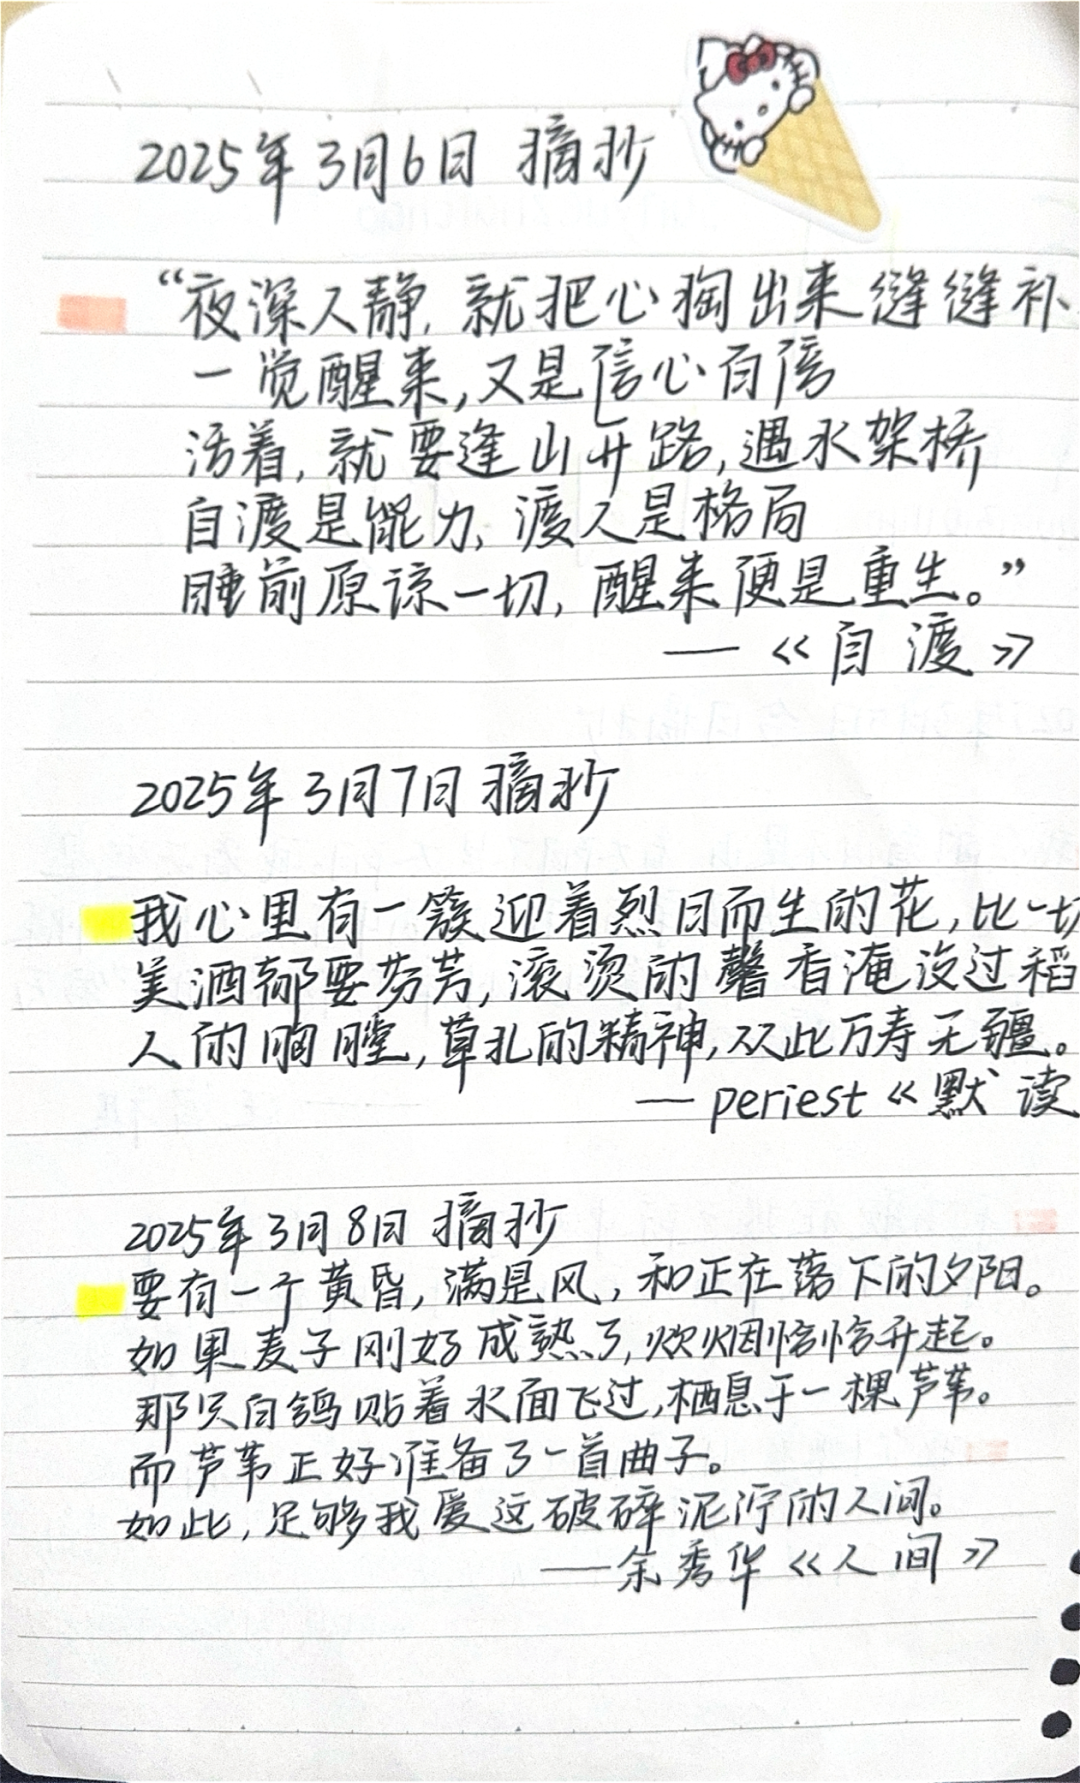 2025年3月6日 摘抄
“夜深人静，就把心掏出来缝缝补
一觉醒来，又是信心百倍
活着，就要逢山开路，遇水架桥
自渡是能力，渡人是格局
睡前原谅一切，醒来便是重生。”
——《自渡》
2025年3月7日 摘抄
我心里有一簇迎着烈日而生的花，比一切
美酒都要芬芳，滚烫的馨香淹没过稻
人的胸膛，草扎的精神，从此万寿无疆。
——periest《默读
2025年3月8日 摘抄
要有一个黄昏，满是风，和正在落下的夕阳。
如果麦子刚好成熟了，炊烟恰恰升起。
那只白鸽贴着水面飞过，栖息于一棵芦苇。
而芦苇正好准备了一首曲子。
如此，足够我爱这破碎泥泞的人间。
——余秀华《人间》